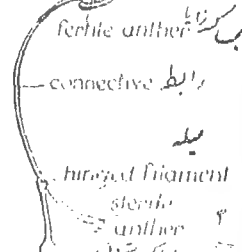 fertile anther
connective رابط
میله
hinged filament
sterile
anther